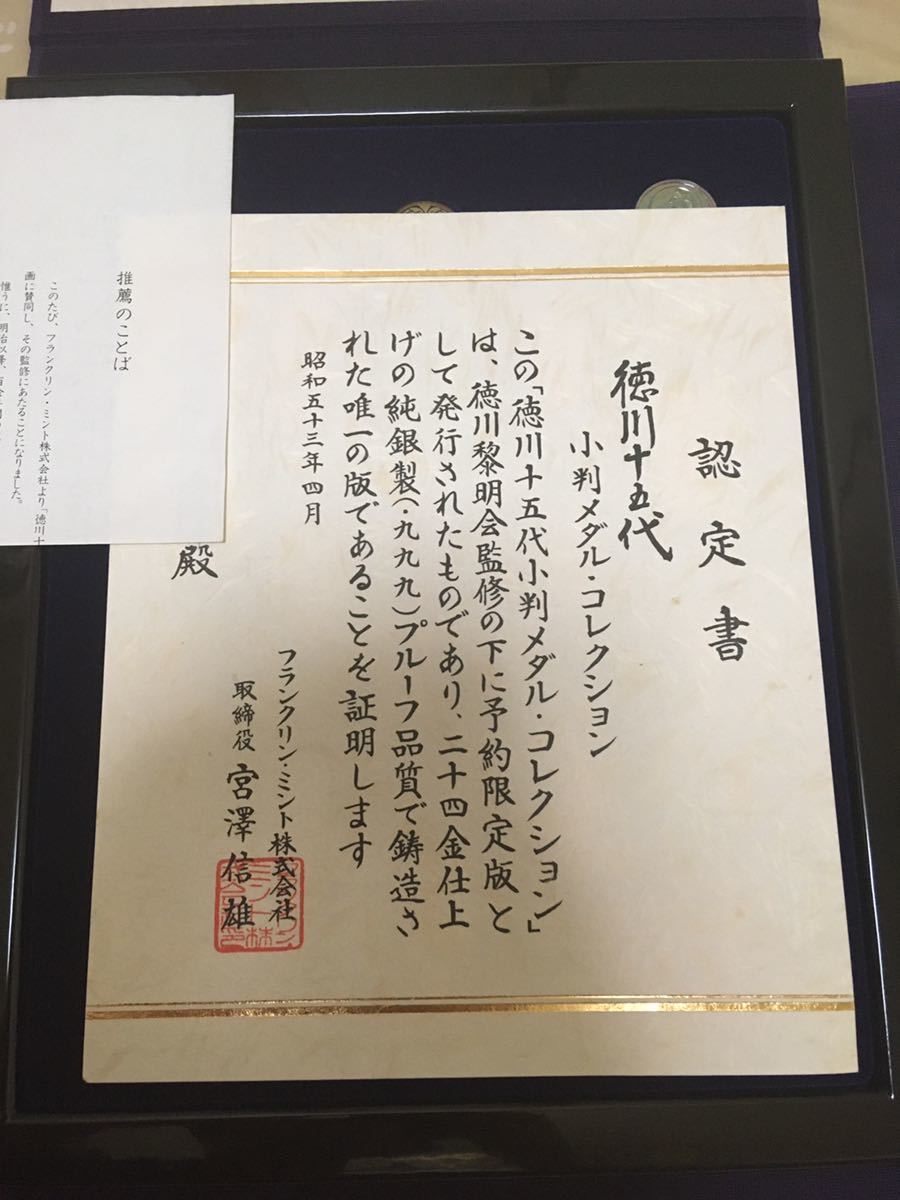 認定書
徳川十五代
小判メダル・コレクション
この「徳川十五代小判メダル・コレクション」
は、徳川黎明会監修の下に予約限定版と
して発行されたものであり、二十四金仕上
げの純銀製(・九九九)プルーフ品質で鋳造さ
れた唯一の版であることを証明します
昭和五十三年四月
フランクリン・ミント株式会社
取締役 宮澤信雄
殿
推薦のことば
このたび、フランクリン・ミント株式会社より「徳川十
画に賛同し、その監修にあたることになりました。
惟うに、明治以降、百余年